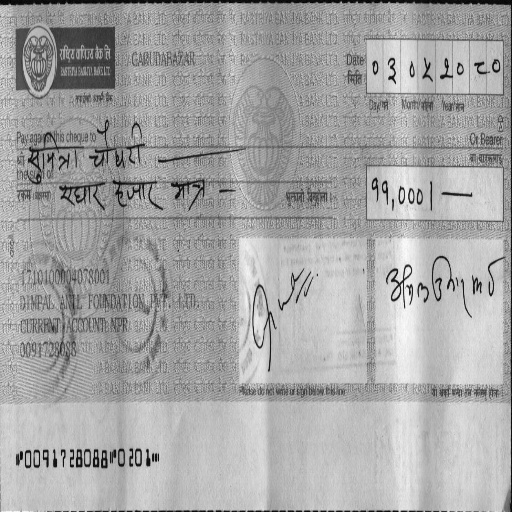 राष्ट्रिय वाणिज्य बैंक लि.
RASTRIYA BANIJYA BANK LTD.
GARUDABAZAR
Date
मिति
०३०५२०८०
Day/गते Month/महिना Year/साल
Pay against this cheque to
Or Bearer
श्री सुमित्रा चौधरी
वा वाहकलाई
the sum of
रकम (अक्षरमा) एघार हजार मात्र -
११,०००|—
1710100004078001
DIMPAL ANIL FOUNDATION PVT. LTD.
CURRENT ACCOUNT NPR
0091728088
Please do not write or sign below this line
"0091728088"0201"